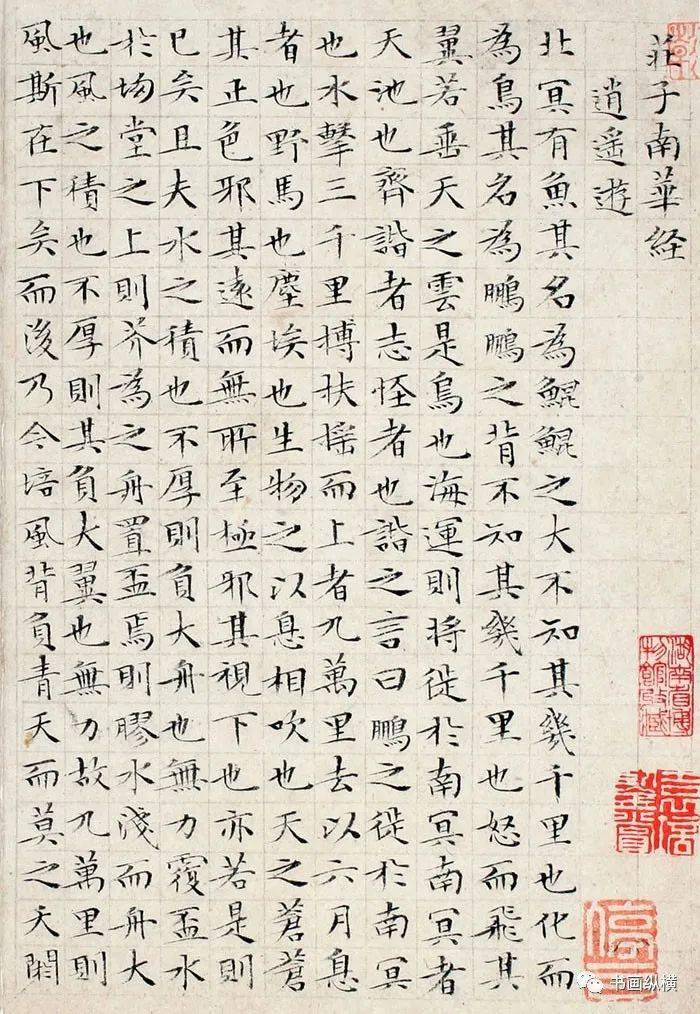 莊子南華経
逍遥遊
北冥有魚其名為鯤鯤之大不知其幾千里也化而
為鳥其名為鵬鵬之背不知其幾千里也怒而飛其
翼若垂天之雲是鳥也海運則將徙於南冥南冥者
天池也齊諧者志怪者也諧之言曰鵬之徙於南冥
也水擊三千里搏扶摇而上者九萬里去以六月息
者也野馬也塵埃也生物之以息相吹也天之蒼蒼
其正色邪其遠而無所至極邪其視下也亦若是則
已矣且夫水之積也不厚則負大舟也無力覆盃水
於坳堂之上則芥為之舟置盃焉則膠水淺而舟大
也風之積也不厚則其負大翼也無力故九萬里則
風斯在下矣而後乃今培風背負青天而莫之夭閼
湖南省博
物館收藏
书画纵横